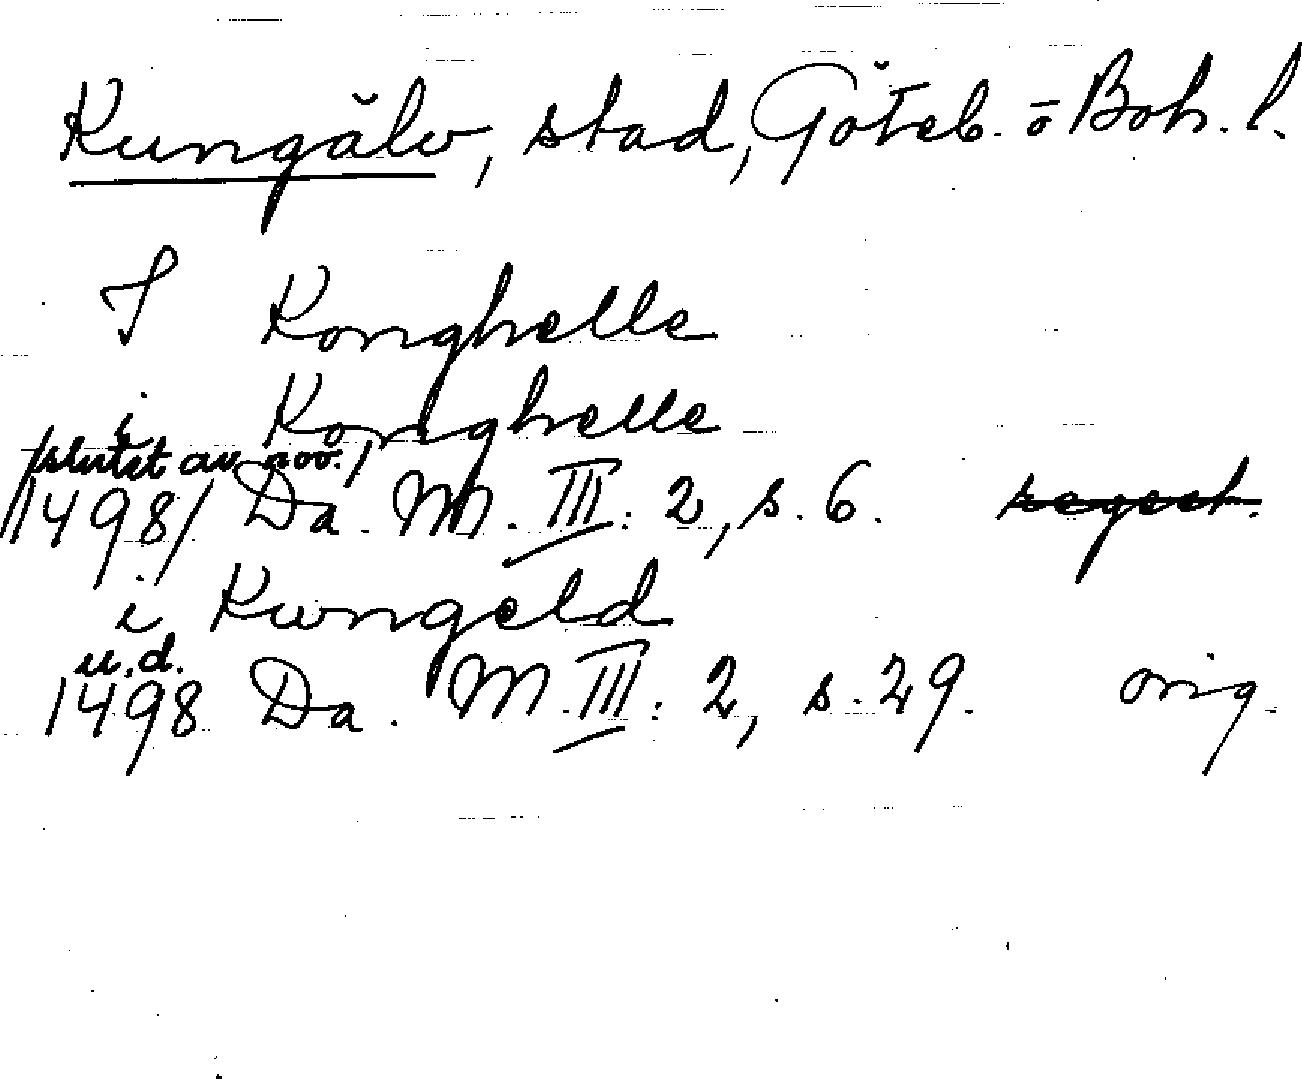 Kungälv, stad, Göteb. o Boh. l.
I Konghelle
i Konghelle
/slutet av nov./
/1498/ Da. M. III: 2, s. 6. regest.
i Kungeld
u.d.
1498 Da. M. III: 2, s. 29. orig.